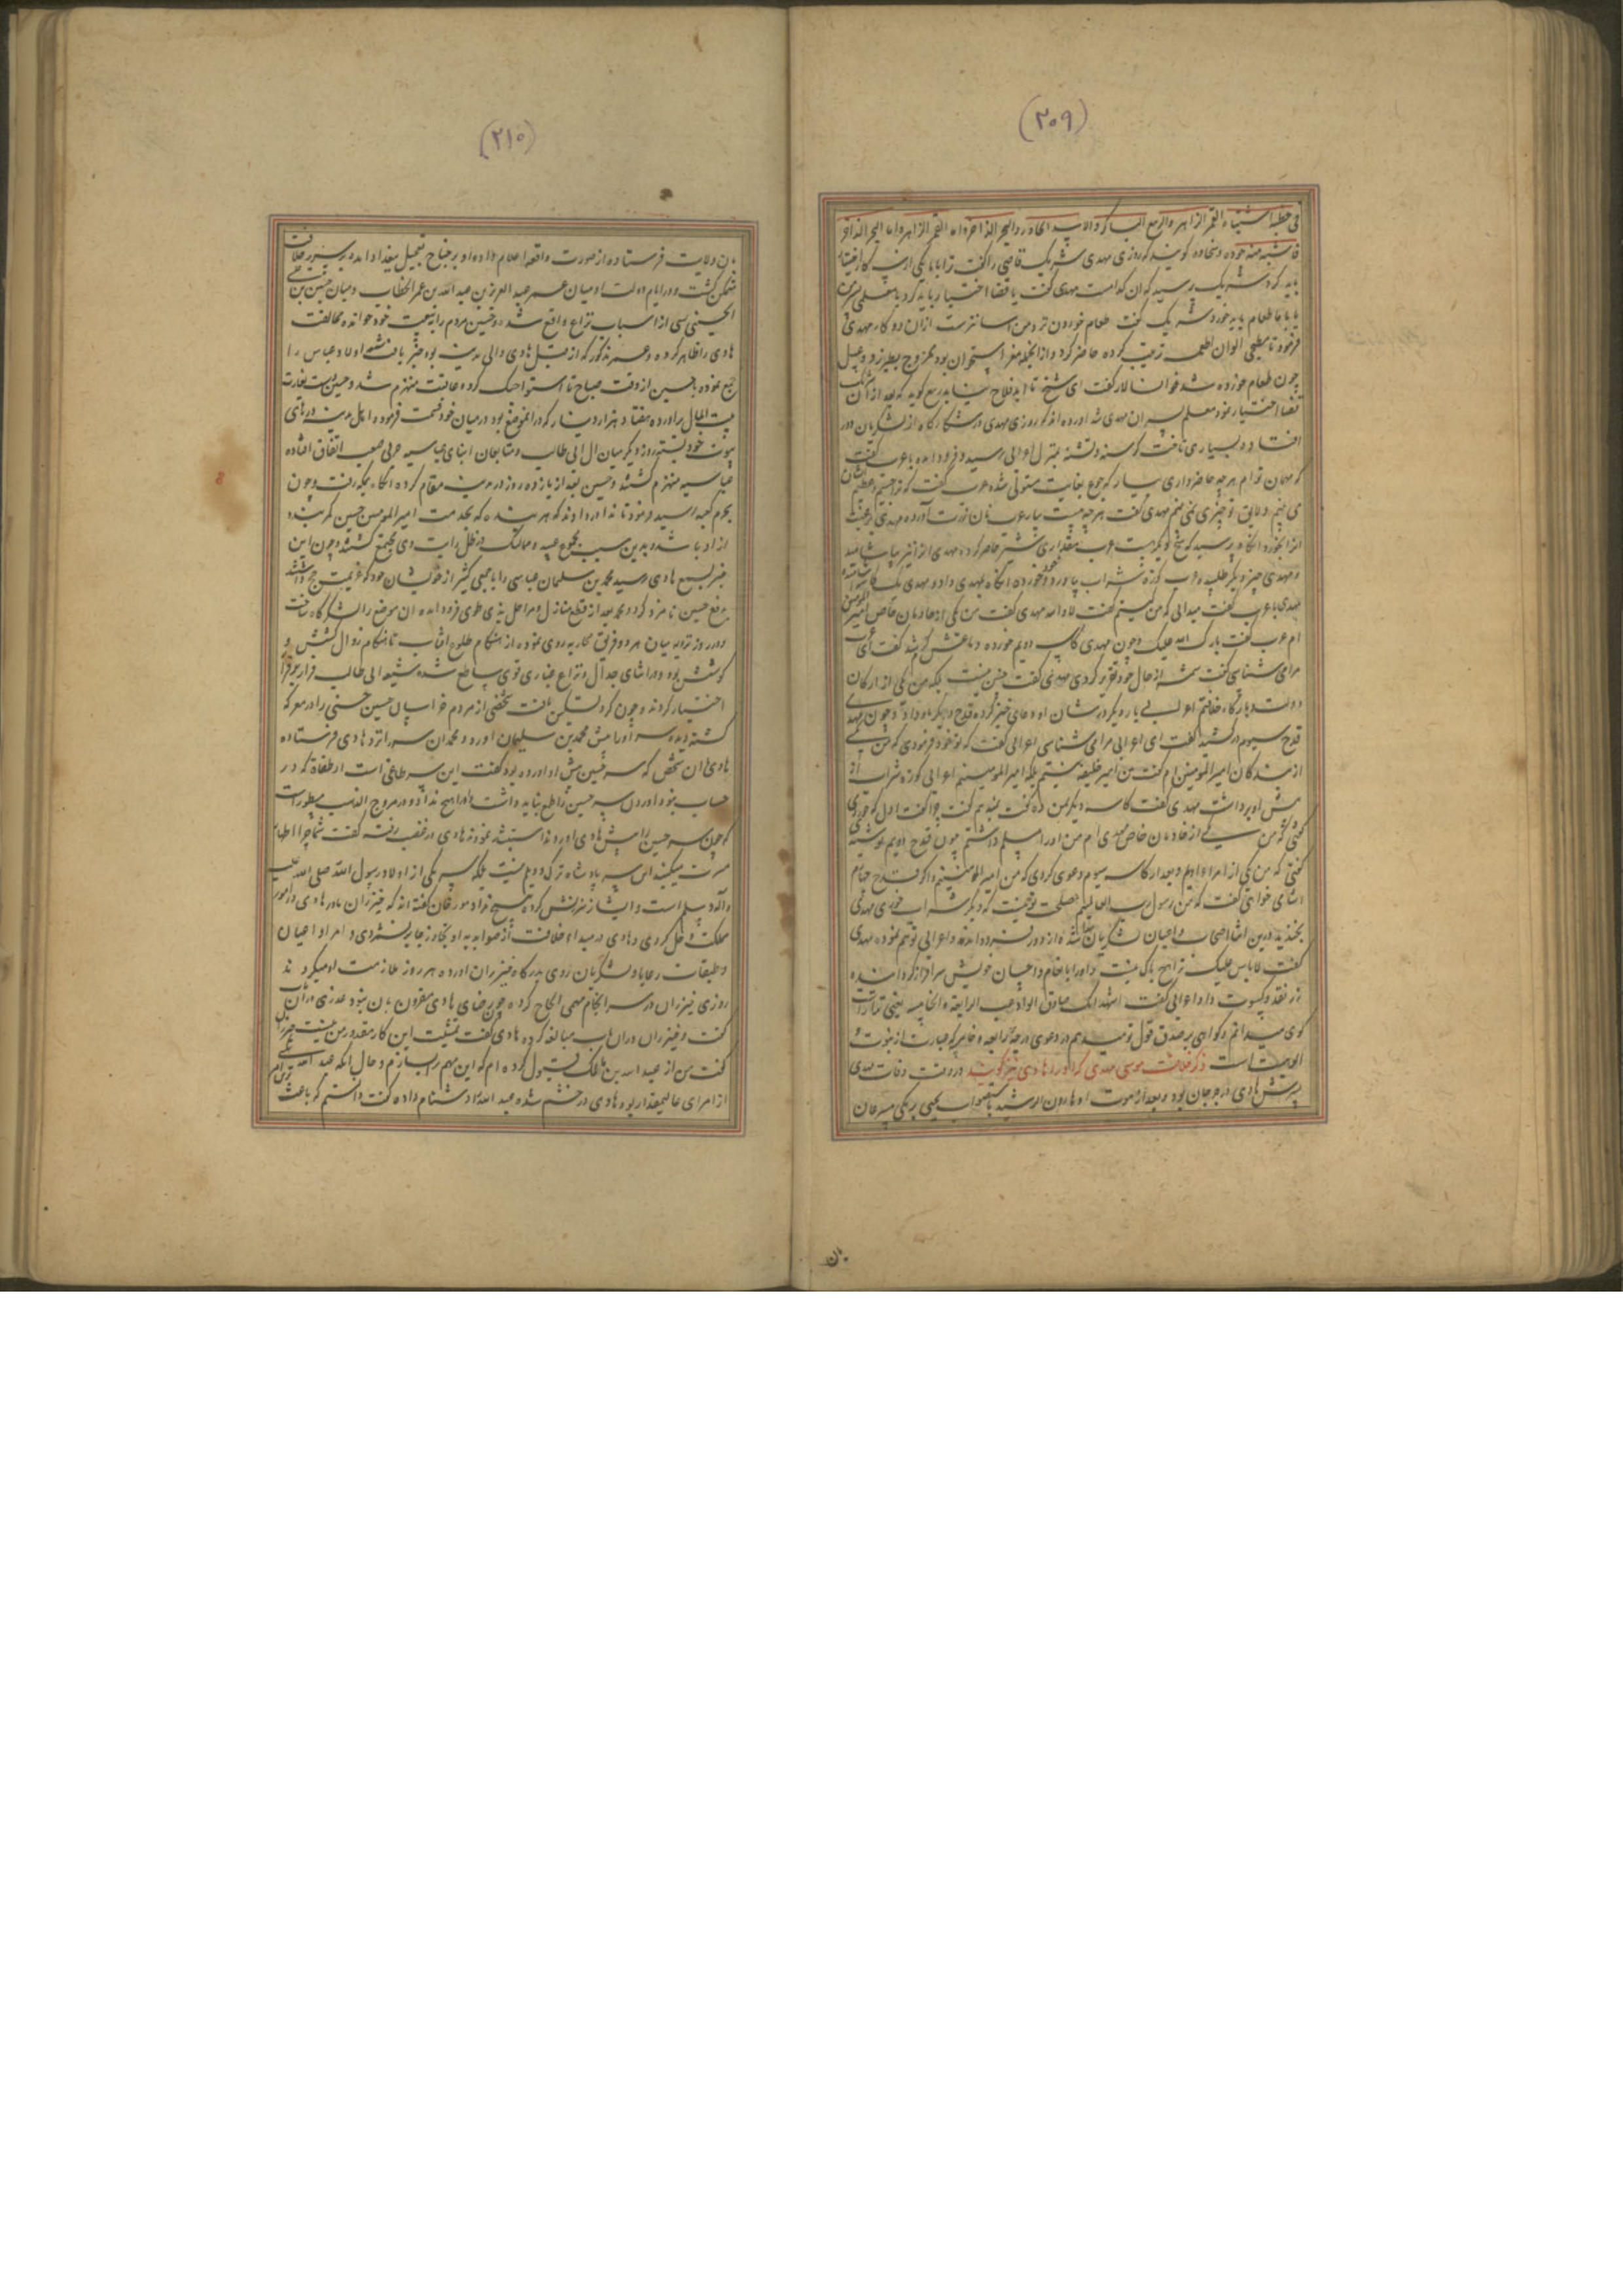 (۲۰۹)
فی خطبه اشتباه القمر الزاهر والربیع الباکر والاسد الخادر والبحر الزاخر و اما القمر الزاهر و اما البحر الزاخر
جوده وسخاوه گویند که روزی مهدی شریک قاضی را گفت ترا با یکی ازین
باید کرد شریک پرسید که آن کدامست مهدی گفت یا قضا اختیار باید کرد یا معلمی
یا با ما طعام باید خورد شریک گفت طعام خوردن نزد من آسانترست از آن دو کار مهدی
فرمود تا مطبخی الوان اطعمه ترتیب کرده حاضر کرد و از آنجمله مغز استخوان بود ممزوج بطبرزد و عسل
چون طعام خورده شد خوانسالار گفت ای شیخ تا ابد فلاح نیابی ربیع گوید که بعد از آن شریک
قضا اختیار نمود معلم پسران مهدی شد آورده اند که روزی مهدی در شکارگاه از لشکریان دور
افتاد و بسیاری تاخت گرسنه و تشنه بمنزل اعرابی رسید و فرود آمده با عرب گفت
که مهمان توام هر چه حاضر داری بیار که جوع بغایت مستولی شده عرب گفت که ترا جسیم و عظیم الشان
می بینم و لایق تو چیزی نمی بینم مهدی گفت هر چه هست بیار عرب نان ذرت آورده مهدی برغبت
انرا بخورد آنگاه پرسید که هیچ دیگر هست عرب مقداری شیر حاضر کرد مهدی آنرا نیز بیاشامید
و مهدی چیز دیگر طلبید عرب کوزه شراب بیاورد و خود خورده آنگاه بمهدی داد و مهدی یک کاسه
مهدی با عرب گفت میدانی که من کیستم گفت لا والله مهدی گفت من یکی از خادمان خاص امیر المومنین
ام عرب گفت بارک الله علیک و چون مهدی کاسه دویم خورده دماغش گرم شد گفت ای عرب
مرا می شناسی گفت شمه از حال خود تقریر کردی مهدی گفت چنین نیست بلکه من یکی از ارکان
دولت و بارگاه خلافتم اعرابی باره دیگر در شان او دعای خیر کرده قدح دیگر باو داد و چون مهدی
قدح سیوم در کشید گفت ای اعرابی مرا می شناسی اعرابی گفت که تو خود فرمودی که من یکی
از بندگان امیر المومنین ام گفت من امیر خلیفه نیستم بلکه امیر المومنینم اعرابی کوزه شراب از
پیش او برداشت مهدی گفت کاسه دیگر بمن ده گفت نمیدهم گفت چرا گفت اول که خوردی
گفتی که من یکی از خادمان خاص مهدی ام من آنرا مسلم داشتم چون قدح دویم نوشیدی
گفتی که من یکی از امراء اویم و بعد از کاسه سیوم دعوی کردی که من امیر المومنینم و اگر قدح چهارم
آشامی خواهی گفت که من رسول رب العالمینم مصلحت تو نیست که دیگر شراب خوری مهدی
بخندید درین اثنا اصحاب و اعیان لشکریان پیدا شده از دور فرود آمدند و اعرابی توهم نموده مهدی
گفت لاباس علیک ترا هیچ باک نیست و او را بانعام و احسان خویش سرافراز گردانیده
زر نقد و کسوت داد اعرابی گفت اشهد انک صادق الرابعة و الخامسة یعنی
گوی میدانم و گواهی بر صدق قول تو میدهم در دعوی درجه رابعه و خامسه که عبارت از نبوت و
الوهیت است ذکر خلافت موسی مهدی که او را هادی نیز گویند در وقت وفات مهدی
پسرش هادی در جرجان بود و بعد از موت او هارون الرشید باستصواب یحیی برمکی مسرعان
بان
(۲۱۰)
بان ولایت فرستاده از صورت واقعه اعلام داد و او بر جناح تعجیل ببغداد آمده بر سریر خلافت
متمکن گشت و در ایام دولت او میان عمر عبد العزیز بن عبد الله بن عمر الخطاب و میان حسین بن علی
الحسنی بسببی از اسباب نزاع واقع شد و حسین مردم را ببیعت خود خوانده مخالفت
هادی را ظاهر کرده و عمر مذکور که از قبل هادی والی مدینه بود خبر یافته اولاد عباس را
جمع نموده با حسین از وقت صباح تا استوا جنگ کرده عاقبت منهزم شد و حسین دست بغارت
بیت المال برآورده هفتاد هزار دینار که در آنموضع بود در میان خود قسمت فرموده اهل مدینه درهای
بیوت خود بسته روز دیگر میان آل ابی طالب و متابعان ابنای عباسیه حربی صعب اتفاق افتاده
عباسیه منهزم گشتند و حسین بعد از یازده روز در مدینه مقام کرده آنگاه بمکه رفت و چون
بحرم کعبه رسید فرمود تا ندا در دادند که هر بنده که بخدمت امیر المومنین حسین کمر بندد
آزاد باشد و بدین سبب مجموع عبید و ممالیک در ظل رایت وی مجتمع گشتند و چون این
خبر بسمع هادی رسید محمد بن سلیمان عباسی را با جمعی کثیر از خویشان خود که عزیمت حج داشتند
بدفع حسین نامزد کرد و محمد بعد از قطع منازل و مراحل بذی طوی فرود آمده آن موضع را لشکرگاه ساخت
و در روز ترویه میان هر دو فریق محاربه روی نموده از هنگام طلوع آفتاب تا هنگام زوال کشش و
کوشش بود و در اثنای جدال و نزاع غباری قوی ساطع شده شیعه ابی طالب فرار بر قرار
اختیار کردند و چون گرد تسکین یافت شخصی از مردم خراسان حسین حسنی را در معرکه
کشته دیده سر او را پیش محمد بن سلیمان آورد و محمد آن سر را نزد هادی فرستاده
هادی آن شخص که سر حسین پیش او آورده بود گفت این سر طاغی است از طغاة که در
حساب نبود آوردن سر حسین را طمع نباید داشت و او را هیچ نداد و در مروج الذهب مسطورست
که چون سر حسین را پیش هادی آوردند استبشار نمودند هادی در غضب رفته گفت شما چرا اظهار
مسرت میکنید این سر پادشاه ترک و دیلم نیست بلکه سر یکی از اولاد رسول الله صلی الله علیه
و آله و سلم است و ایشانرا سرزنش کرده هیچ نداد مورخان گفته اند که خیزران مادر هادی در امور
مملکت دخل کردی و هادی در مبداء خلافت از صوابدید او تجاوز جایز نشمردی و امرا و اعیان
و طبقات رعایا و لشکریان روی بدرگاه خیزران آورده هر روز ملازمت او میکردند
روزی خیزران در سرانجام مهمی الحاح کرده چون رضای هادی مقرون بآن نبود عذری در آن باب
گفت و خیزران در آن باب مبالغه کرده هادی گفت تمشیت این کار مقدور من نیست خیزران
گفت من از عبد الله بن مالک قبول کرده ام که این مهم را بسازم و حال آنکه عبد الله یکی
از امرای عالیمقدار بود هادی در خشم شده عبد الله را دشنام داده گفت دانستم که باعث